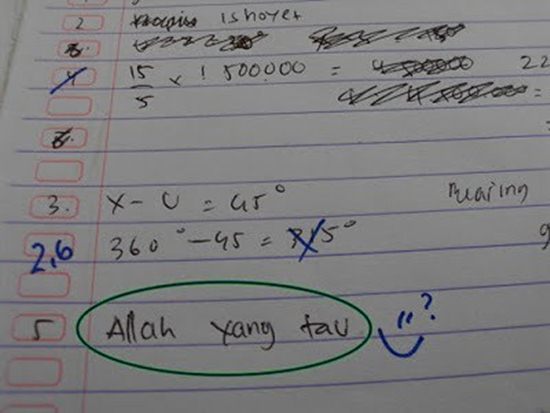 2 Ishoyet
4 15/5 x 1 500000 = 22
=
3. X - U = 45°
Bearing
2,6 360° - 45 = 315°
9
5 Allah yang tau "?